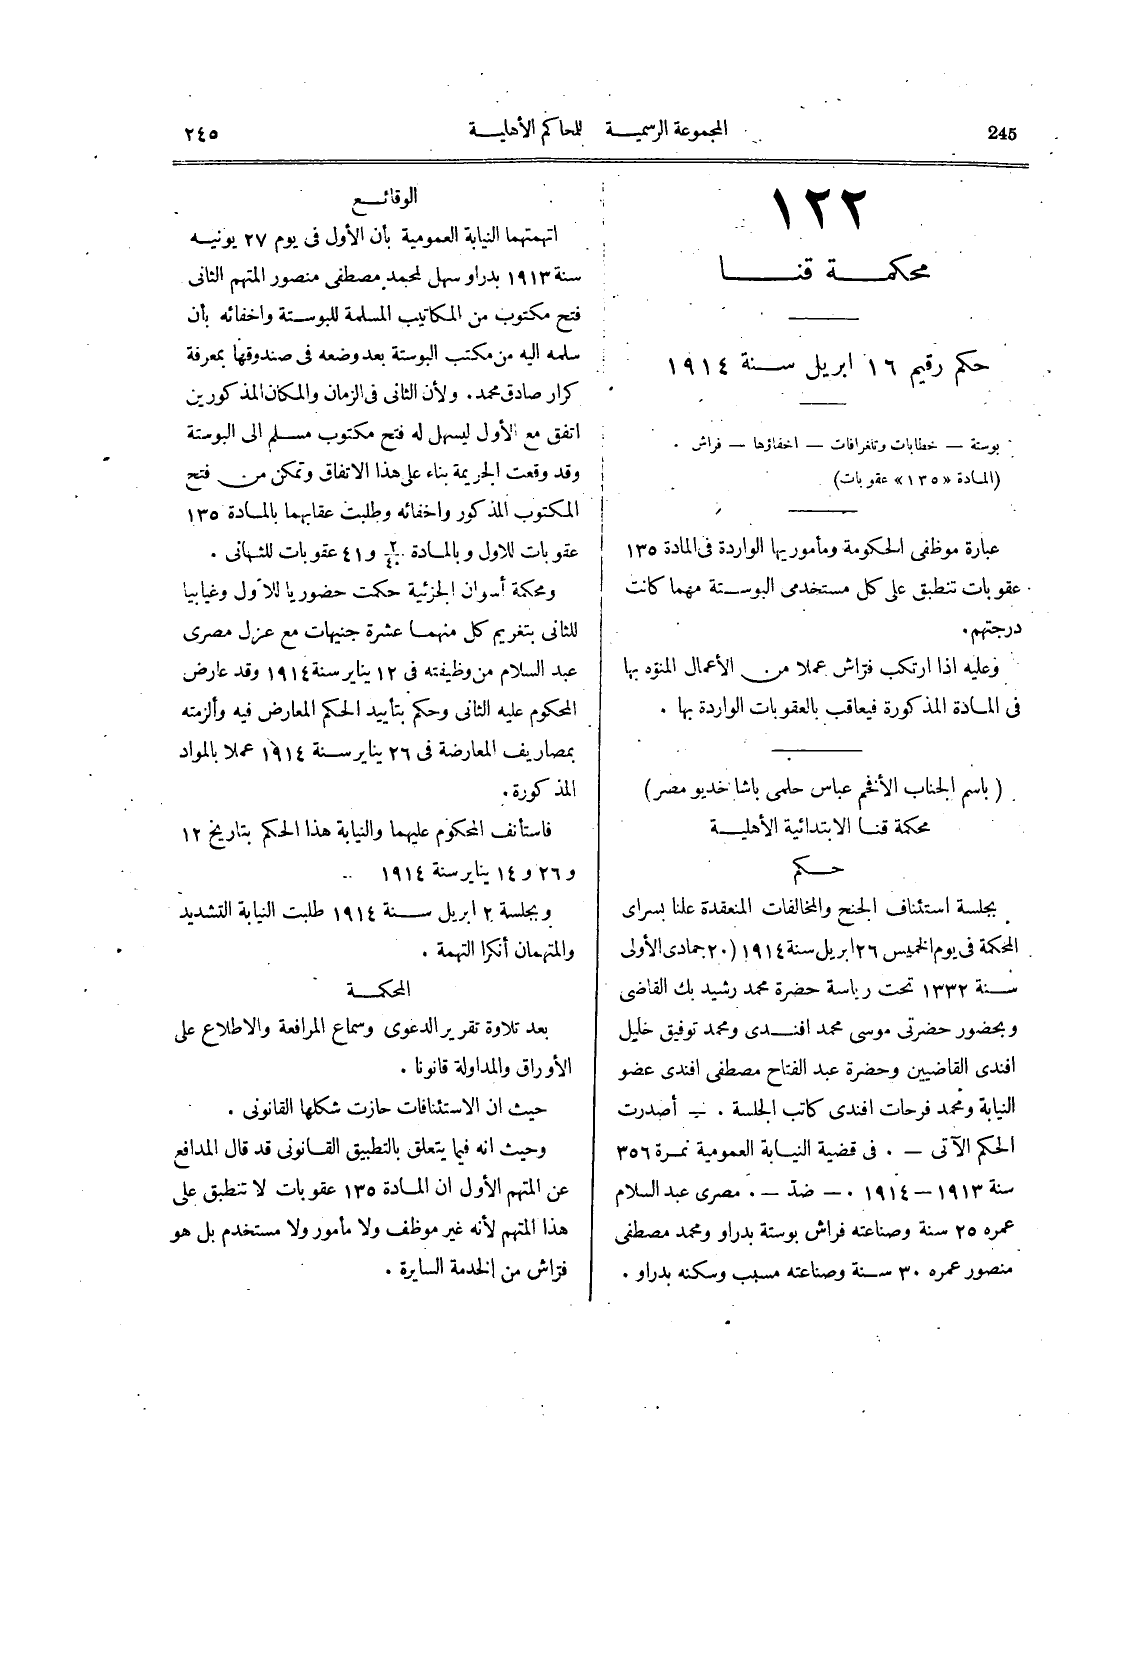 245 المجموعة الرسمية للمحاكم الأهلية ٢٤٥
١٢٢
محكمة قنا
حكم رقيم ١٦ ابريل سنة ١٩١٤
بوستة — خطابات وتلغرافات — اخفاؤها — فراش .
(المادة «١٣٥» عقوبات)
عبارة موظفى الحكومة ومأموريها الواردة فى المادة ١٣٥
عقوبات تنطبق على كل مستخدمى البوستة مهما كانت
درجتهم.
وعليه اذا ارتكب فرّاش عملا من الأعمال المنوّه بها
فى المادة المذكورة فيعاقب بالعقوبات الواردة بها .
( باسم الجناب الأفخم عباس حلمى باشا خديو مصر )
محكمة قنا الابتدائية الأهلية
حكم
بجلسة استئناف الجنح والمخالفات المنعقدة علنا بسراى
المحكمة فى يوم الخميس ٢٦ ابريل سنة ١٩١٤ (٢٠ جمادى الأولى
سنة ١٣٣٢ تحت رياسة حضرة محمد رشيد بك القاضى
وبحضور حضرتى موسى محمد افندى ومحمد توفيق خليل
افندى القاضيين وحضرة عبد الفتاح مصطفى افندى عضو
النيابة ومحمد فرحات افندى كاتب الجلسة . — أصدرت
الحكم الآتى — . فى قضية النيابة العمومية نمرة ٣٥٦
سنة ١٩١٣ — ١٩١٤ . — ضدّ — . مصرى عبد السلام
عمره ٢٥ سنة وصناعته فراش بوستة بدراو ومحمد مصطفى
منصور عمره ٣٠ سنة وصناعته مسبب وسكنه بدراو .
الوقائع
اتهمتهما النيابة العمومية بأن الأول فى يوم ٢٧ يونيه
سنة ١٩١٣ بدراو سهل لمحمد مصطفى منصور المتهم الثانى
فتح مكتوب من المكاتيب المسلمة للبوستة واخفائه بأن
سلمه اليه من مكتب البوستة بعد وضعه فى صندوقها بمعرفة
كرار صادق محمد . ولأن الثانى فى الزمان والمكان المذكورين
اتفق مع الأول ليسهل له فتح مكتوب مسلم الى البوستة
وقد وقعت الجريمة بناء على هذا الاتفاق وتمكن من فتح
المكتوب المذكور واخفائه وطلبت عقابهما بالمادة ١٣٥
عقوبات للاول وبالمادة ٢/٤٠ و ٤١ عقوبات للثانى .
ومحكمة أسوان الجزئية حكمت حضوريا للأول وغيابيا
للثانى بتغريم كل منهما عشرة جنيهات مع عزل مصرى
عبد السلام من وظيفته فى ١٢ يناير سنة ١٩١٤ وقد عارض
المحكوم عليه الثانى وحكم بتأييد الحكم المعارض فيه وألزمته
بمصاريف المعارضة فى ٢٦ يناير سنة ١٩١٤ عملا بالمواد
المذكورة .
فاستأنف المحكوم عليهما والنيابة هذا الحكم بتاريخ ١٢
و ٢٦ و ١٤ يناير سنة ١٩١٤
وبجلسة ٢ ابريل سنة ١٩١٤ طلبت النيابة التشديد
والمتهمان أنكرا التهمة .
المحكمة
بعد تلاوة تقرير الدعوى وسماع المرافعة والاطلاع على
الأوراق والمداولة قانونا .
حيث ان الاستئنافات حازت شكلها القانونى .
وحيث انه فيما يتعلق بالتطبيق القانونى قد قال المدافع
عن المتهم الأول ان المادة ١٣٥ عقوبات لا تنطبق على
هذا المتهم لأنه غير موظف ولا مأمور ولا مستخدم بل هو
فرّاش من الخدمة السايرة .